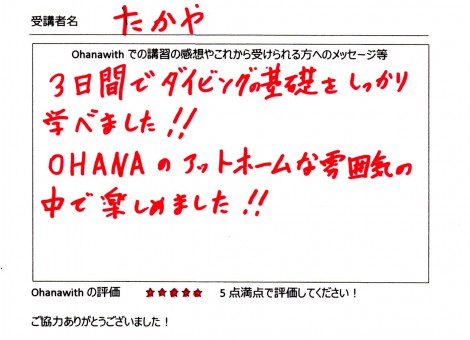 受講者名 たかや
Ohanawith での講習の感想やこれから受けられる方へのメッセージ等
3日間でダイビングの基礎をしっかり
学べました!!
OHANAのアットホームな雰囲気の
中で楽しめました!!
Ohanawith の評価 ★★★★★ 5 点満点で評価してください！
ご協力ありがとうございました！